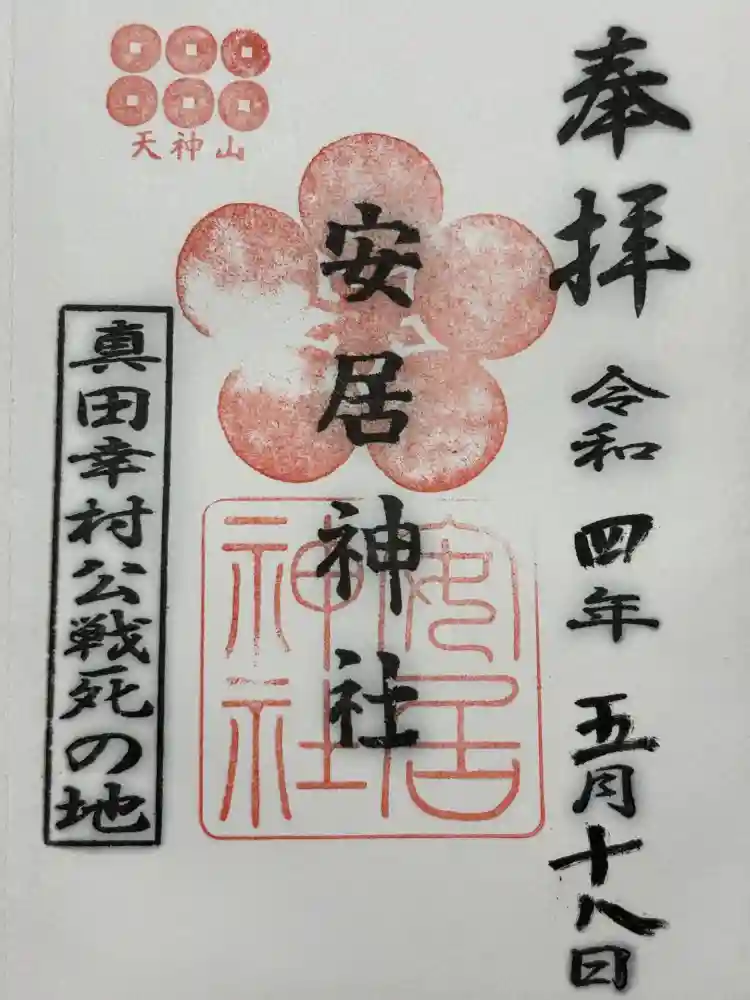 奉拝 令和四年五月十八日
安居神社
安居神社
天神山
真田幸村公戦死の地